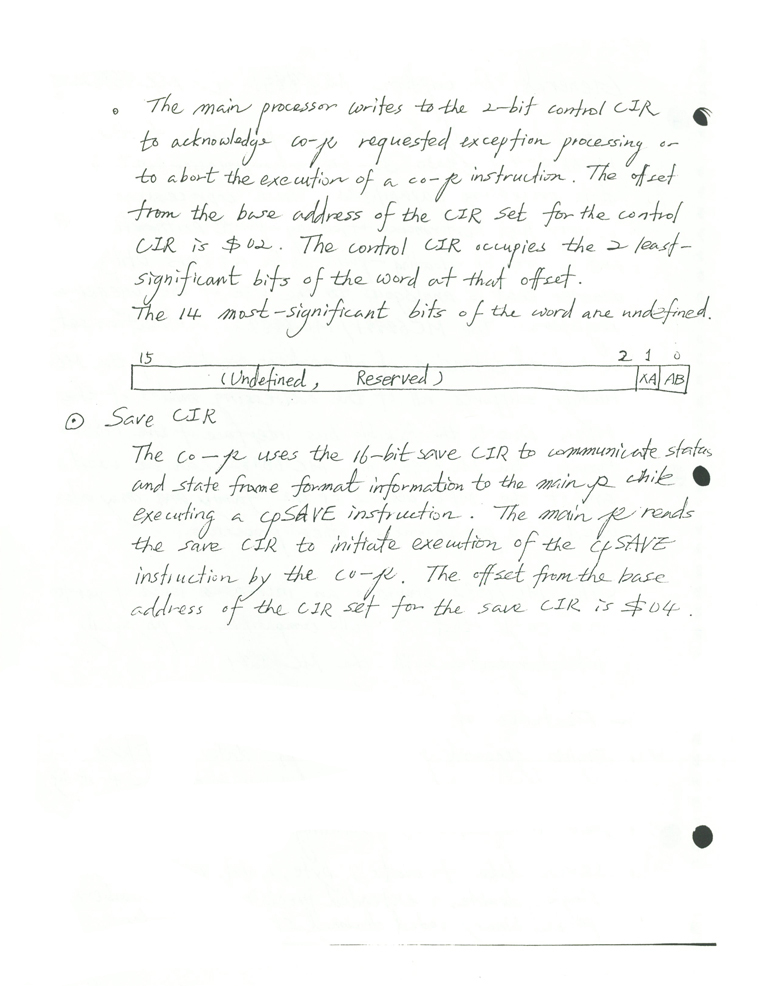 The main processor writes to the 2-bit control CIR
to acknowledge co-p requested exception processing or
to abort the execution of a co-p instruction. The offset
from the base address of the CIR set for the control
CIR is $02. The control CIR occupies the 2 least-
significant bits of the word at that offset.
The 14 most-significant bits of the word are undefined.
15 2 1 0
(Undefined, Reserved) XA AB
⊙ Save CIR
The co-p uses the 16-bit save CIR to communicate status
and state frame format information to the main p while
executing a cpSAVE instruction. The main p reads
the save CIR to initiate execution of the cpSAVE
instruction by the co-p. The offset from the base
address of the CIR set for the save CIR is $04.